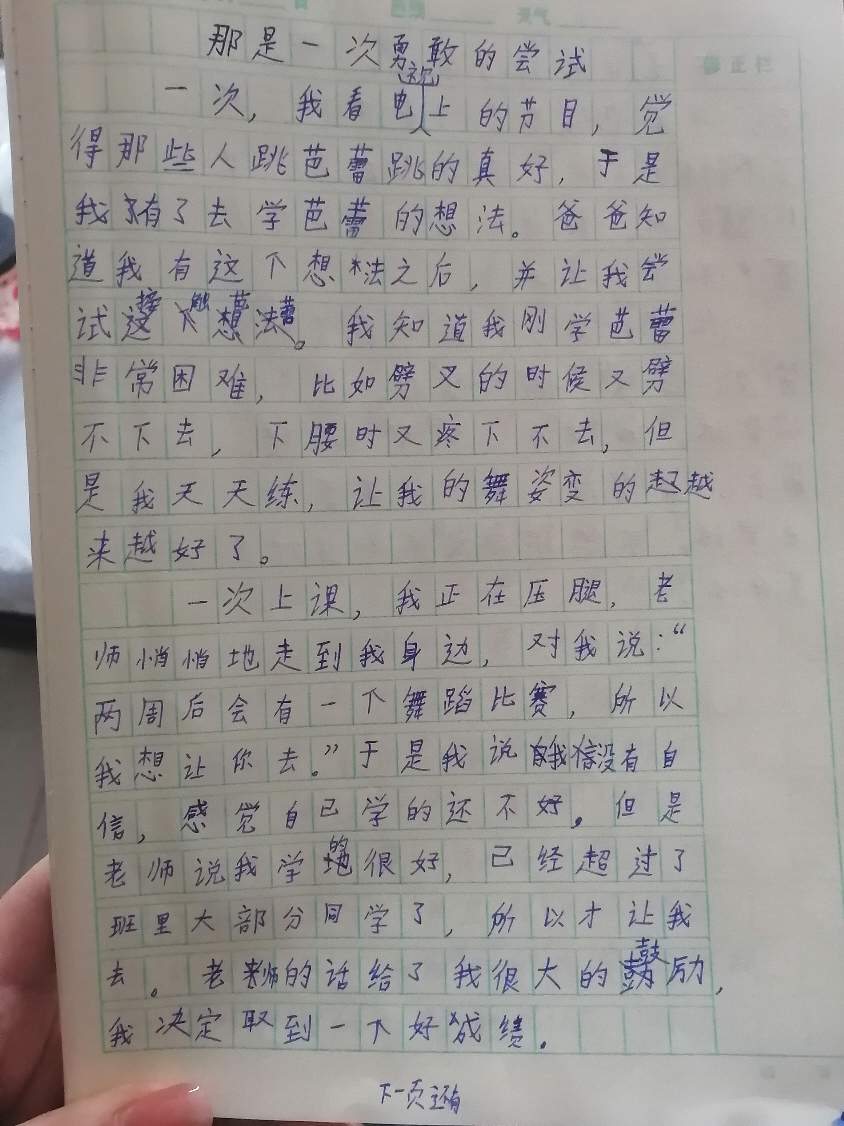 那是一次勇敢的尝试
一次，我看电视上的节目，觉
得那些人跳芭蕾跳的真好，于是
我有了去学芭蕾的想法。爸爸知
道我有这个想法之后，并让我尝
试接触芭蕾。我知道我刚学芭蕾
非常困难，比如劈叉的时候又劈
不下去，下腰时又疼下不去，但
是我天天练，让我的舞姿变的越
来越好了。
一次上课，我正在压腿，老
师悄悄地走到我身边，对我说：“
两周后会有一个舞蹈比赛，所以
我想让你去。”于是我说我没有自
信，感觉自己学的还不好。但是
老师说我学的很好，已经超过了
班里大部分同学了，所以才让我
去。老师的话给了我很大的鼓励，
我决定取到一个好成绩。
下一页还有